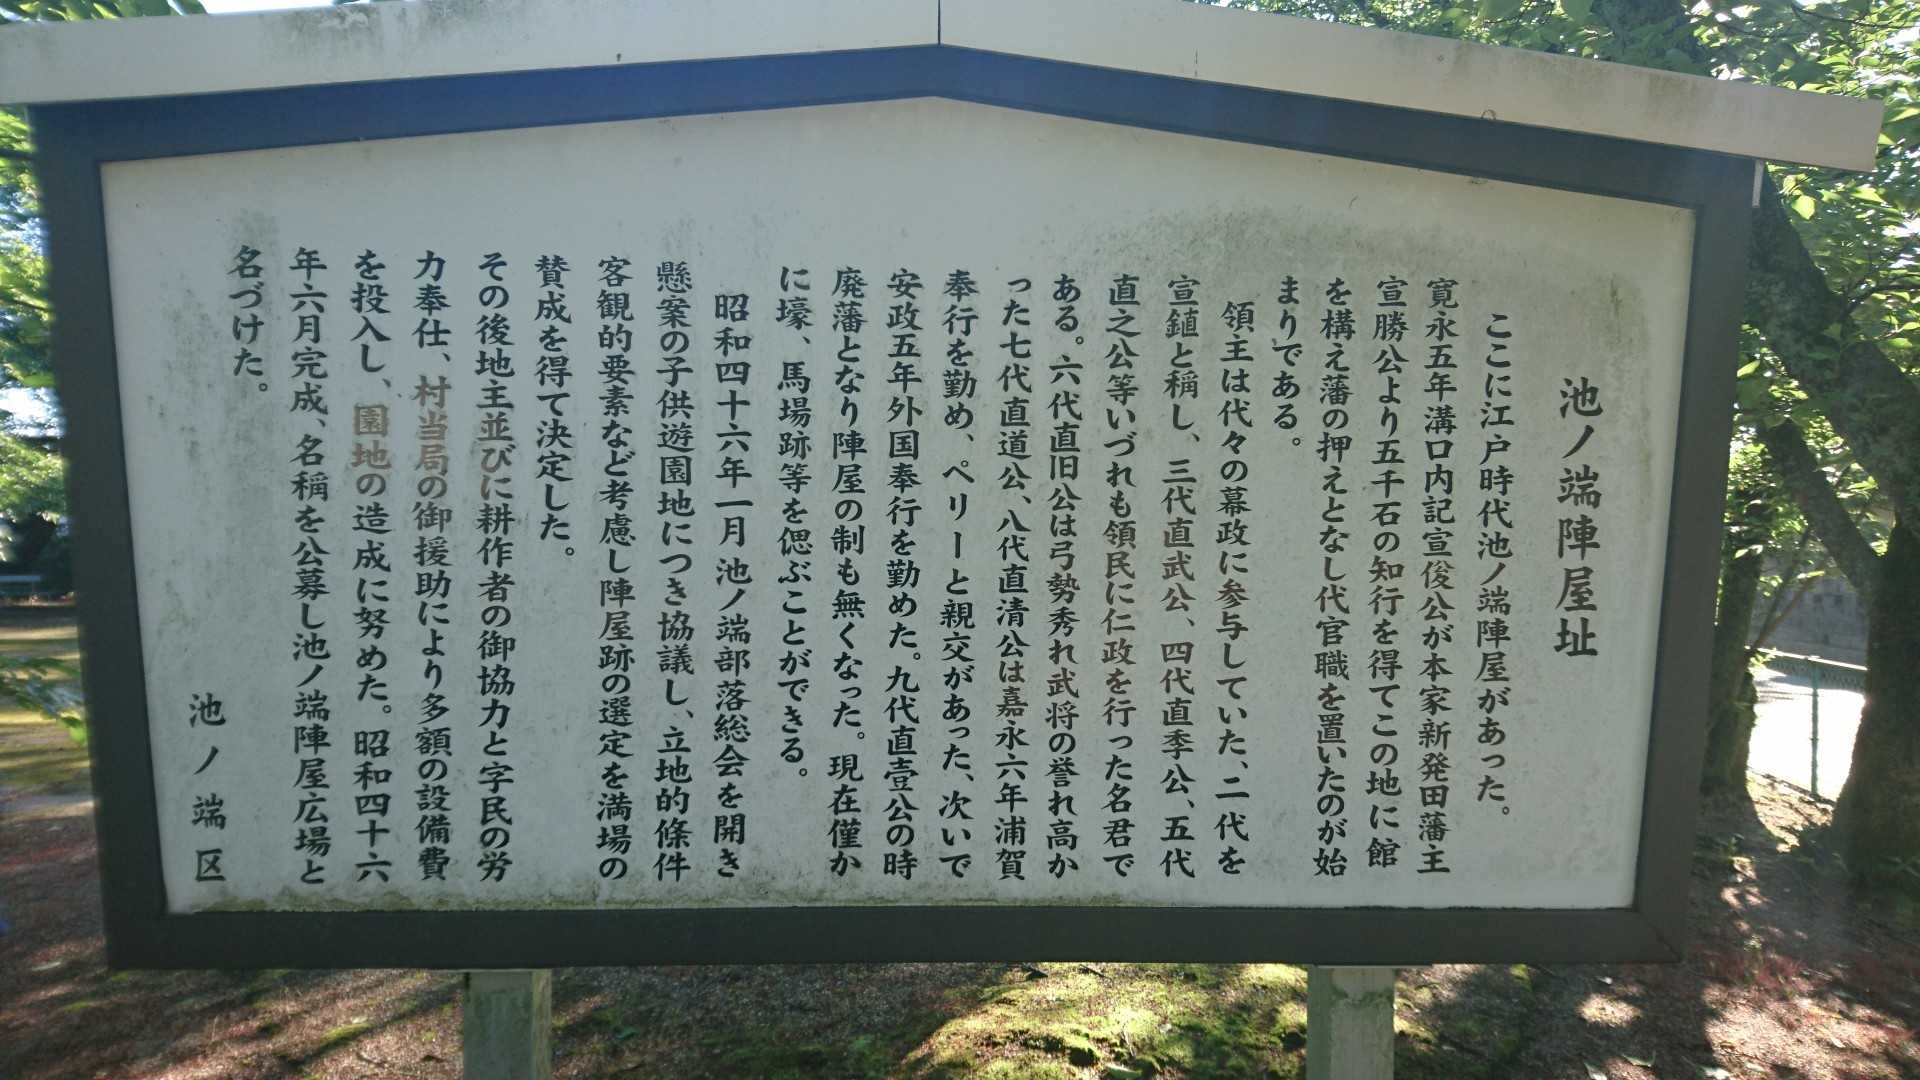 池ノ端陣屋址
ここに江戸時代池ノ端陣屋があった。
寛永五年溝口内記宣俊公が本家新発田藩主
宣勝公より五千石の知行を得てこの地に館
を構え藩の押えとなし代官職を置いたのが始
まりである。
領主は代々の幕政に参与していた、二代を
宣鎚と稱し、三代直武公、四代直季公、五代
直之公等いづれも領民に仁政を行った名君で
ある。六代直旧公は弓勢秀れ武将の誉れ高か
った七代直道公、八代直清公は嘉永六年浦賀
奉行を勤め、ペリーと親交があった、次いで
安政五年外国奉行を勤めた。九代直壹公の時
廃藩となり陣屋の制も無くなった。現在僅か
に壕、馬場跡等を偲ぶことができる。
昭和四十六年一月池ノ端部落総会を開き
懸案の子供遊園地につき協議し、立地的條件
客観的要素など考慮し陣屋跡の選定を満場の
賛成を得て決定した。
その後地主並びに耕作者の御協力と字民の労
力奉仕、村当局の御援助により多額の設備費
を投入し、園地の造成に努めた。昭和四十六
年六月完成、名稱を公募し池ノ端陣屋広場と
名づけた。
池ノ端区